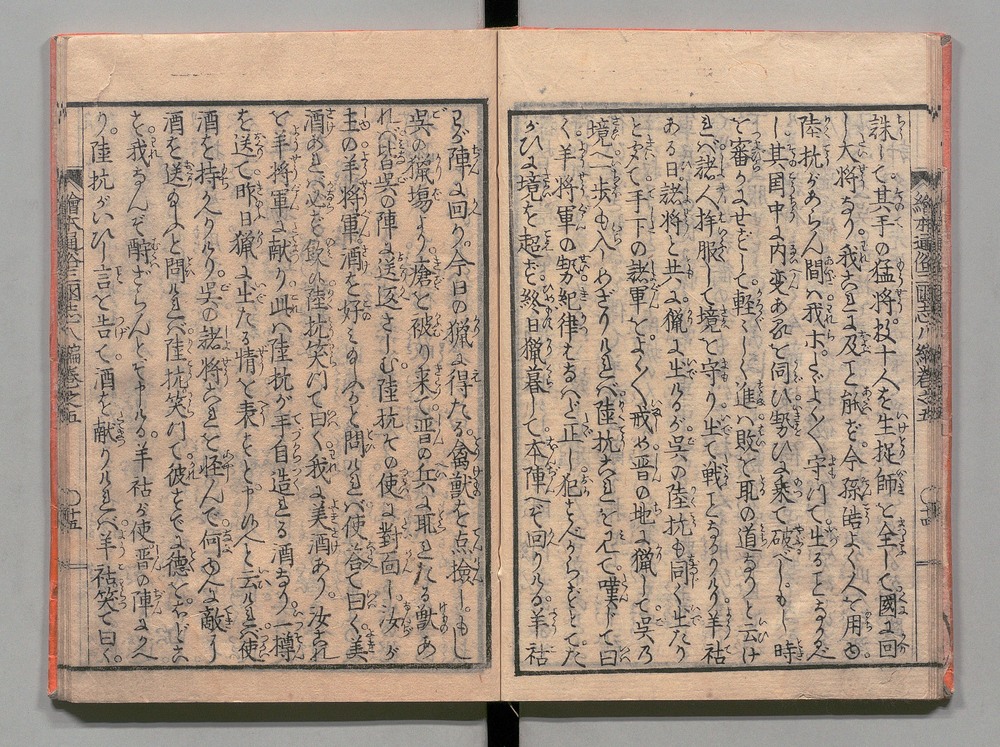 誅して其手の猛将数十人を生捉師を全して國に回
し大将なり我これに及こと觧を今孫皓よく人を用ゆ
陸抗があらん間ハ我ホたゞよく〳〵守りて出ることなかるべ
し其国中に内変あるを伺ひ勢ひに乗て破べしもし時
を審かにせずして軽〳〵しく進ハ敗を取の道なりと云け
れバ諸人拝服して境を守り出て戦ことなかりけり羊祜
ある日諸将と共に猟に出けるが呉の陸抗も同く出たり
と聞て手下の諸軍をよく〳〵戒め晋の地に猟して呉乃
境へ一歩も入しめざりけれバ陸抗これを見て嘆じて曰
く羊将軍の勢紀律あるべど正し犯すべからずとてた
がひに境を超ず終日猟暮して本陣へぞ回りける羊祜
わが陣に回り今日の猟に得たる禽獣を点撿しもし
呉の猟場より瘡を被り来て晋の兵に取れたる獣あ
れバ皆呉の陣に送返さしむ陸抗その使に對面し汝が
主の羊将軍酒を好ミ玉ふかと問けれバ使答て曰く美
酒あれバ必ず飲ル陸抗笑川て曰く我に美酒あり汝これ
を羊将軍に献り此ハ陸抗が手自造れる酒なり一樽
を送て昨日猟に出たる情を表とど申ルと云けれバ使
酒を持かへりけり呉の諸将これを怪んで何ゆへに敵に
酒を送玉ふと問けれバ陸抗笑川て彼すでに徳をほどこ
を我なんぞ酧ざらんとぞ申ける羊祜が使晋の陣にかへ
り陸抗がいひし言を告て酒を献りけれバ羊祜笑て曰く
繪本通俗三國志八編卷之五
十四
繪本通俗三國志八編卷之五
十五